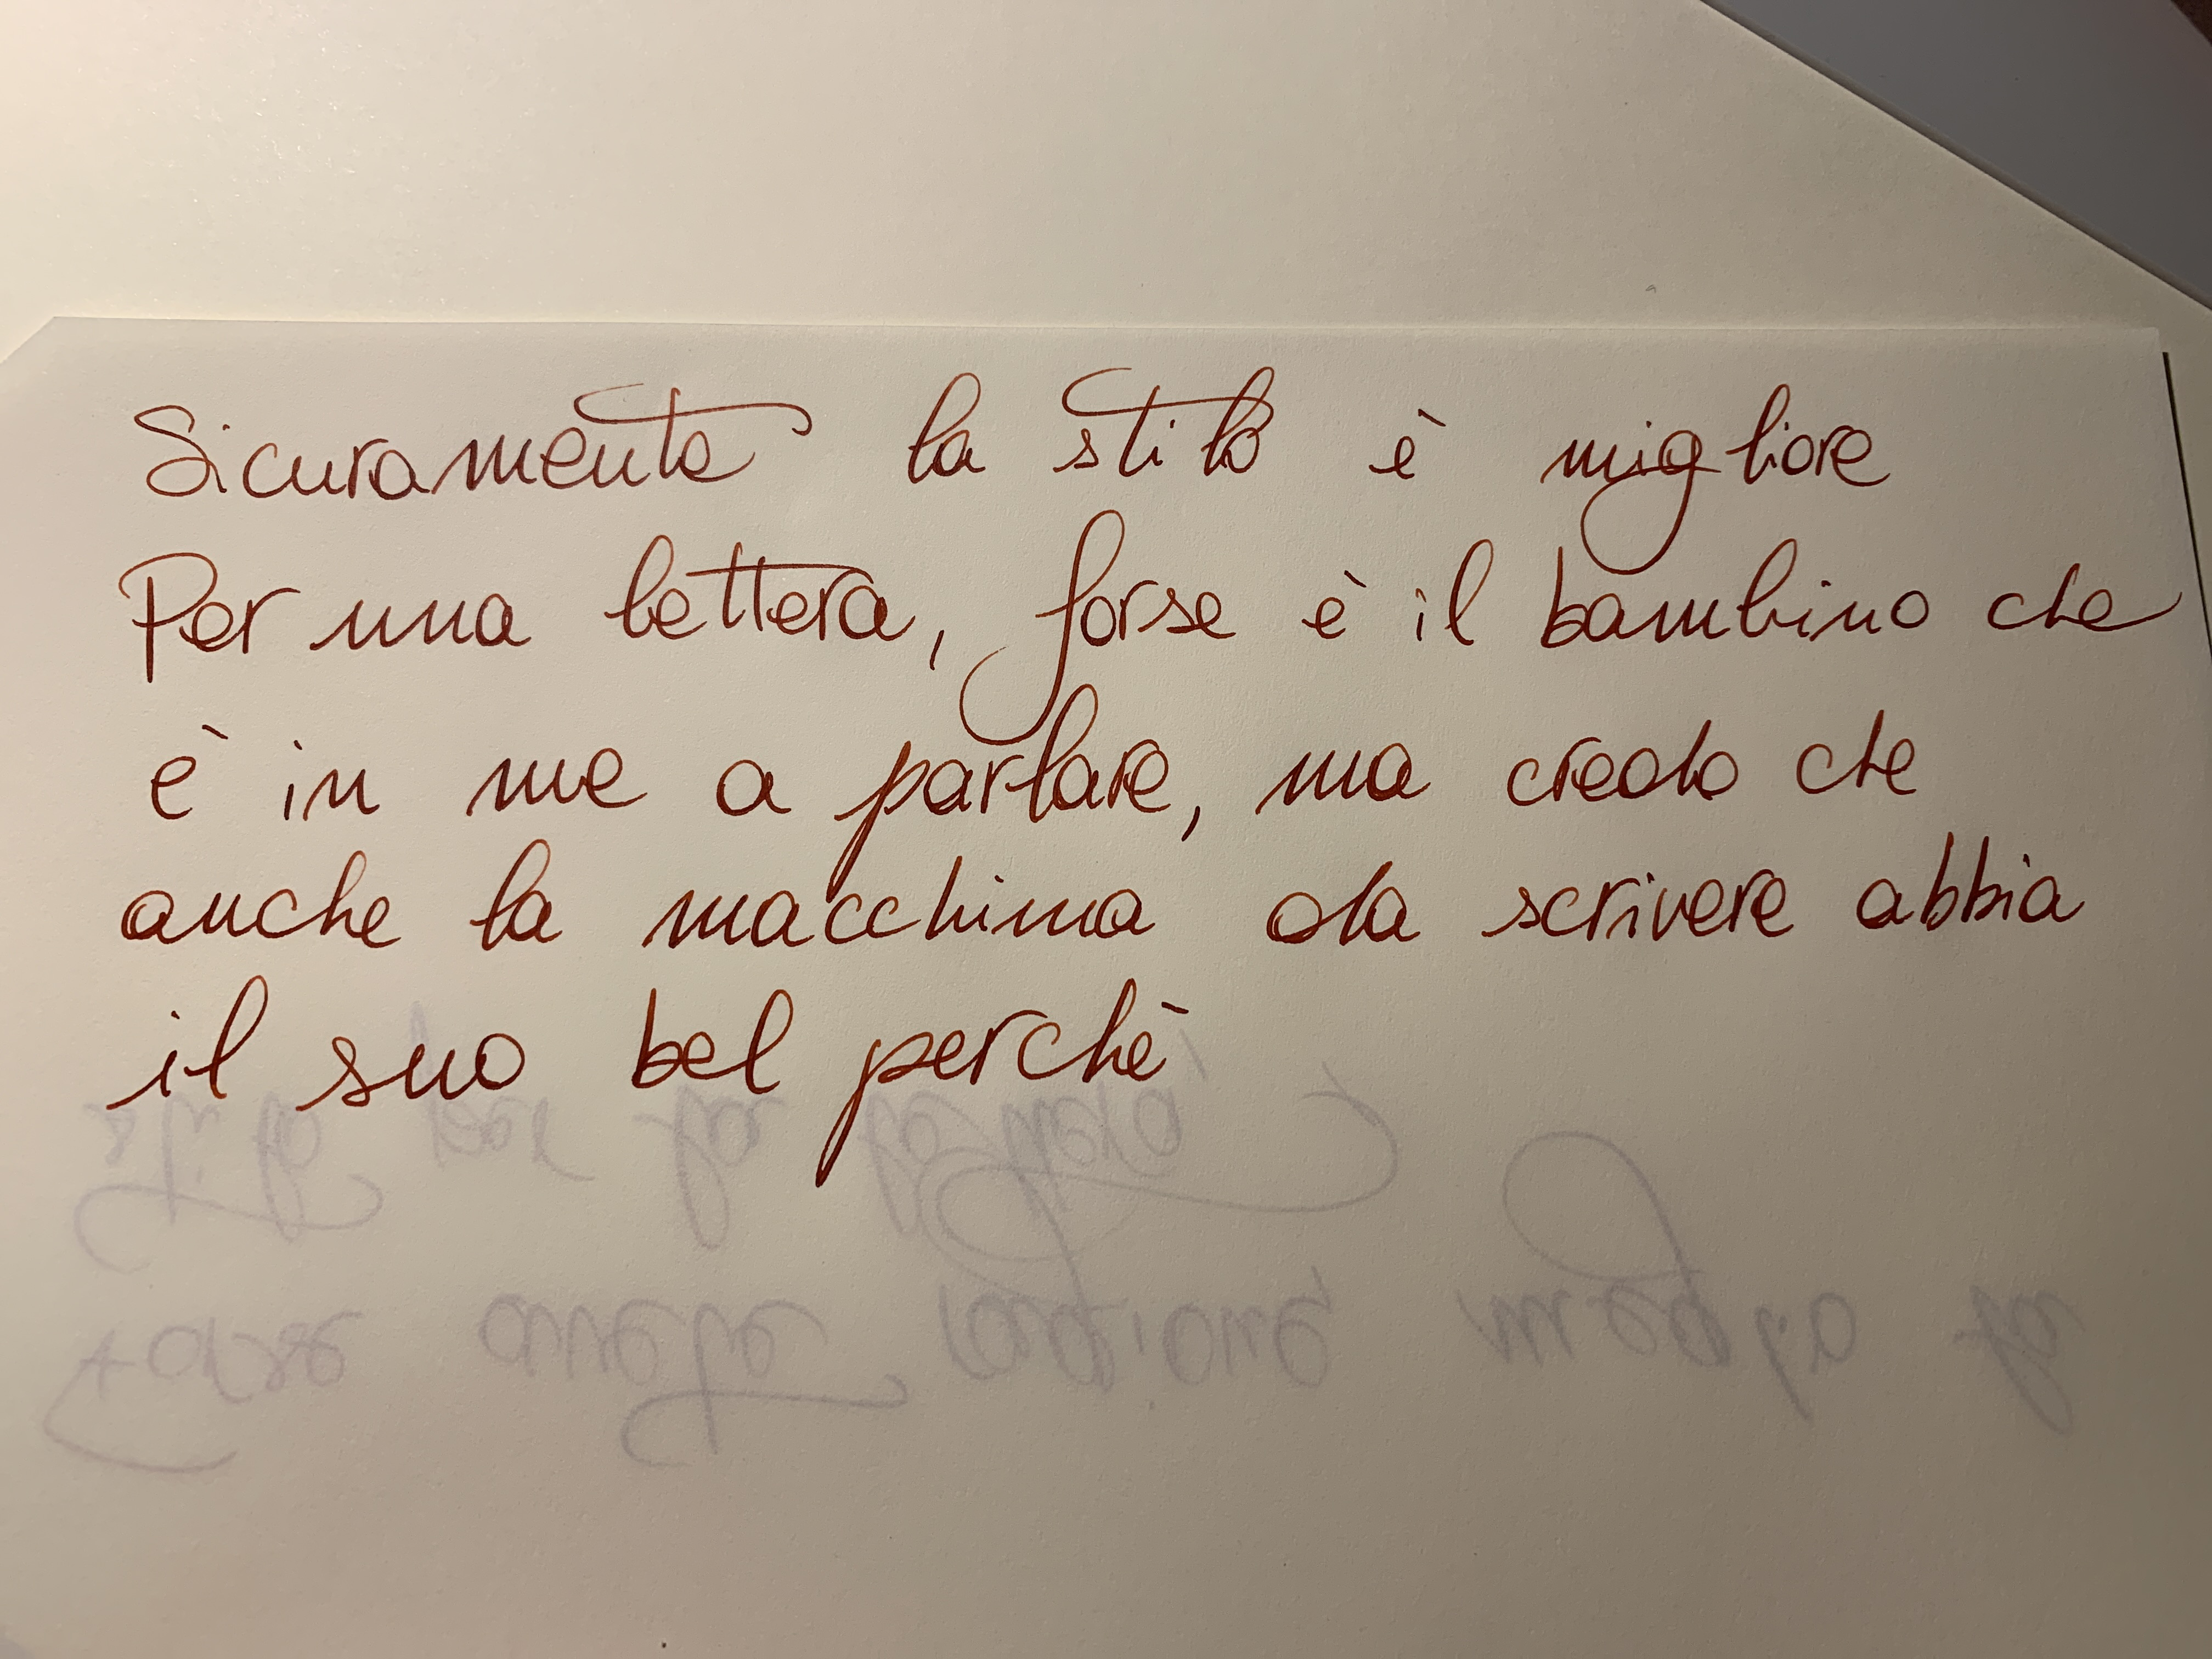 Sicuramente la stilo è migliore
Per una lettera, forse è il bambino che
è in me a parlare, ma credo che
anche la macchina da scrivere abbia
il suo bel perchè